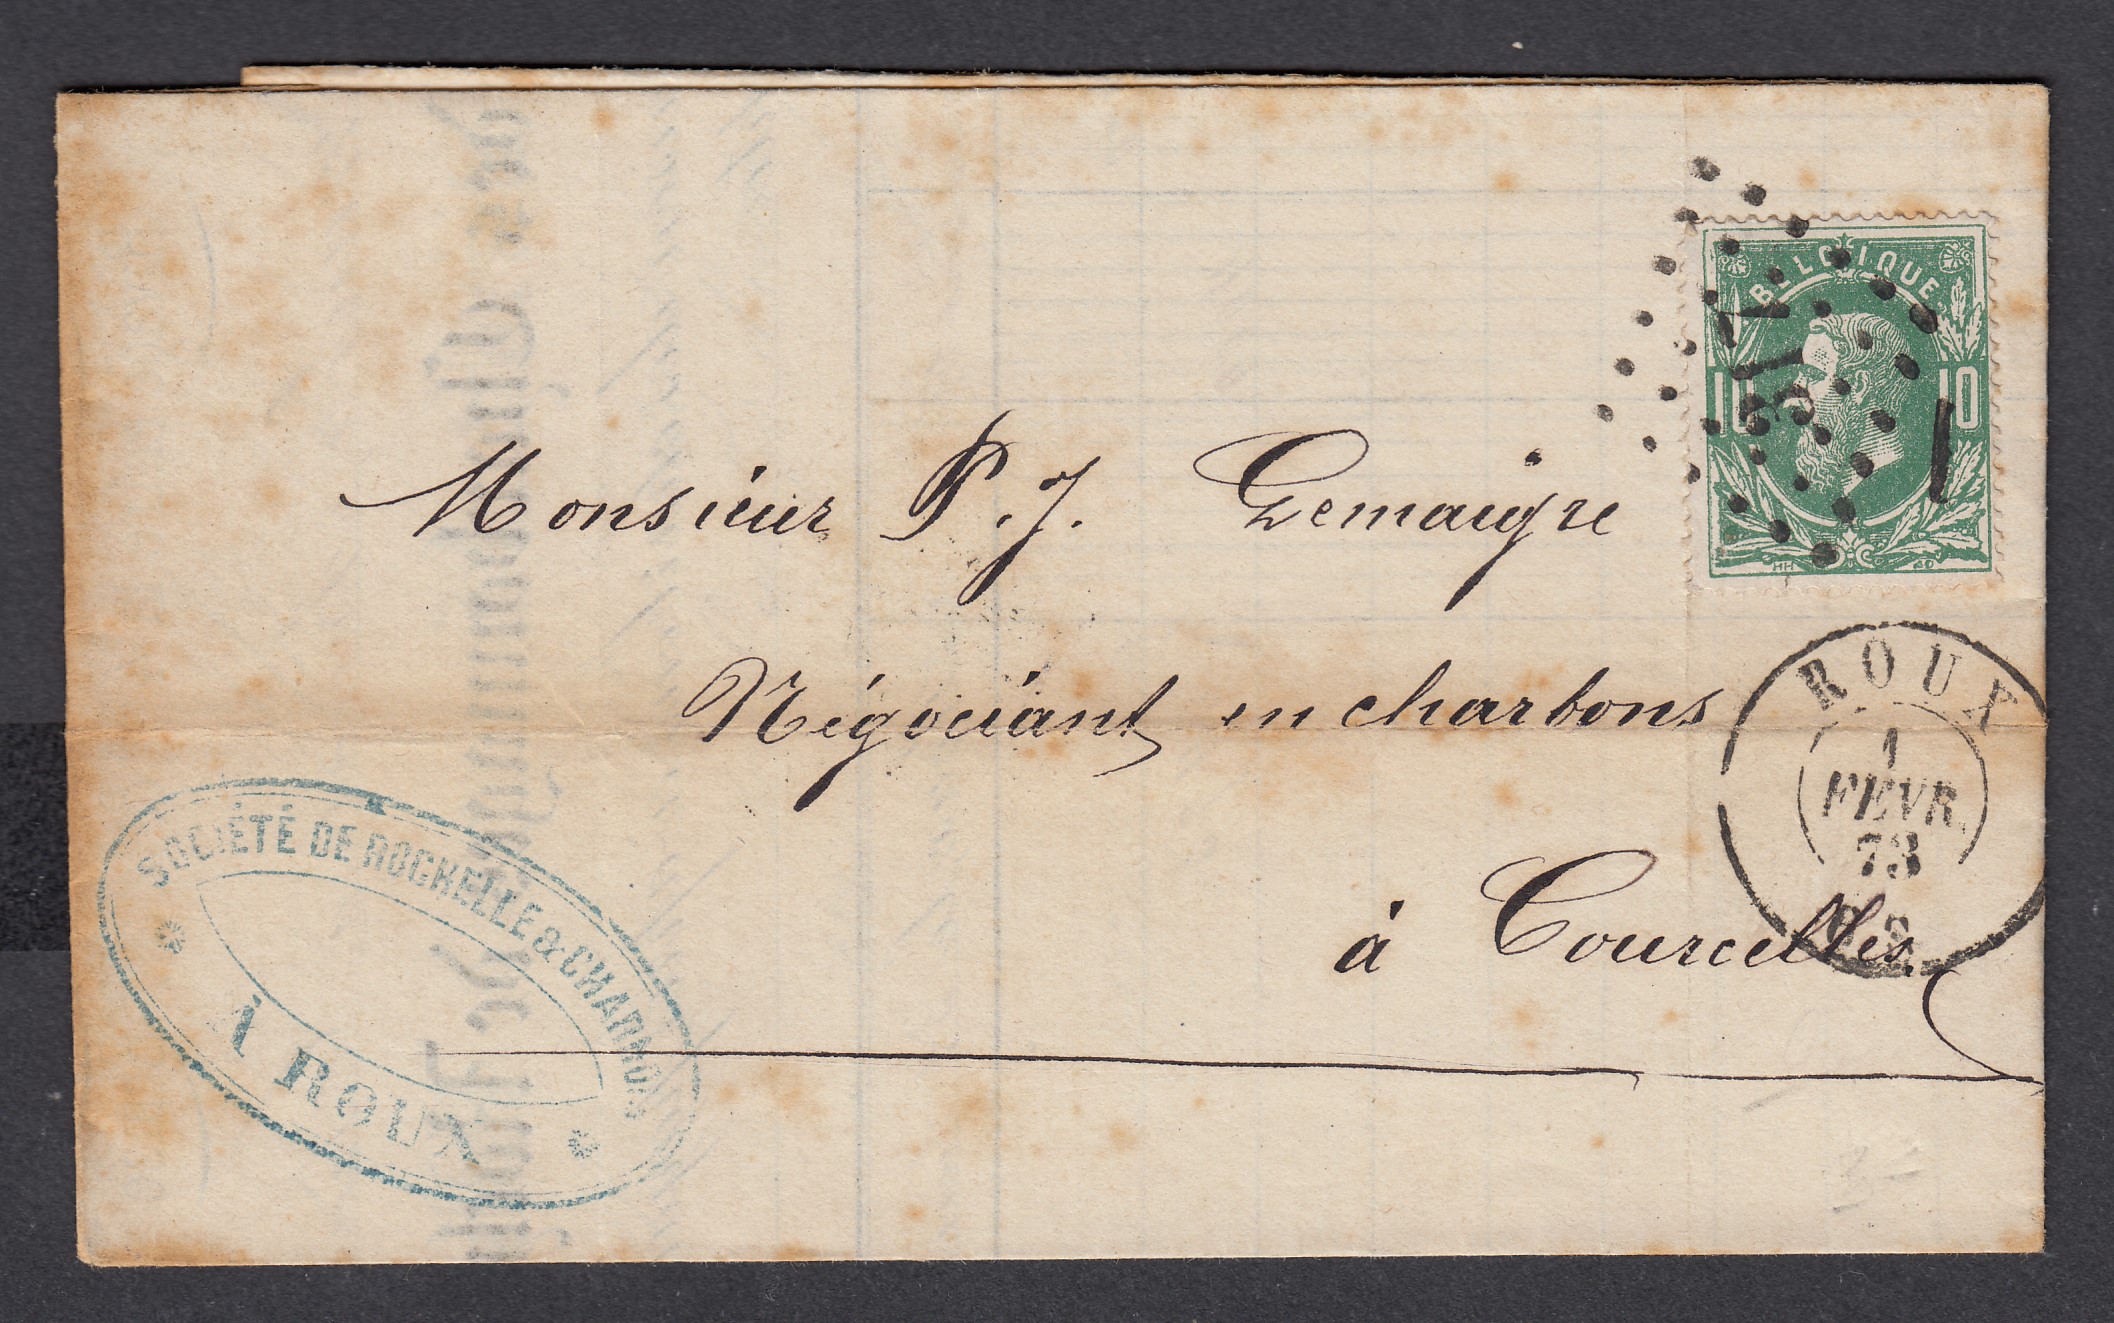 BELGIQUE
10 10
314
Monsieur P. J. Lemaigre
ROUX
1
FEVR.
73
Négociant en charbons
à Courcelles
SOCIÉTÉ DE ROCHELLE & CHARNOIS
À ROUX